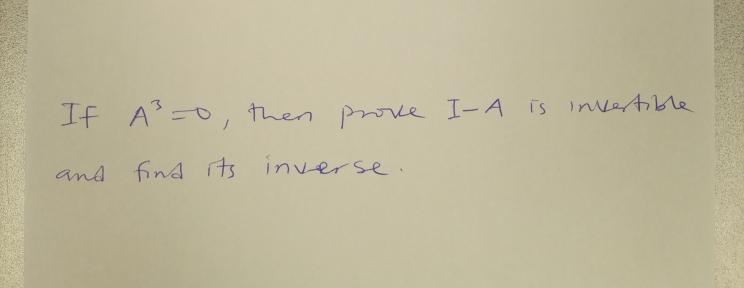 If A³=0, then prove I-A is invertible
and find its inverse.